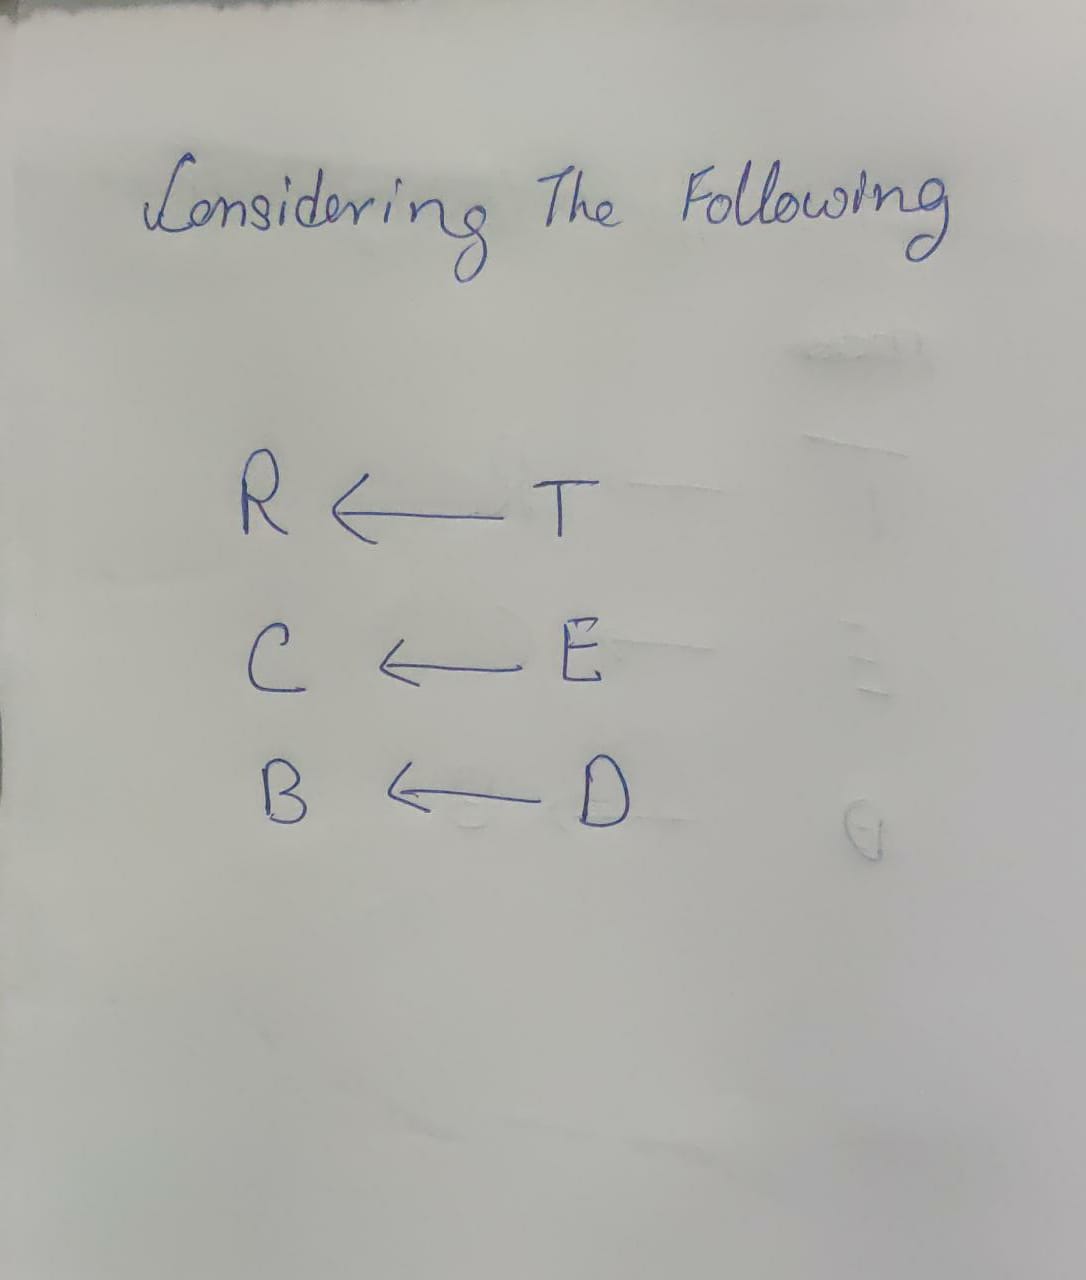 Considering The Following
R ← T
C ← E
B ← D